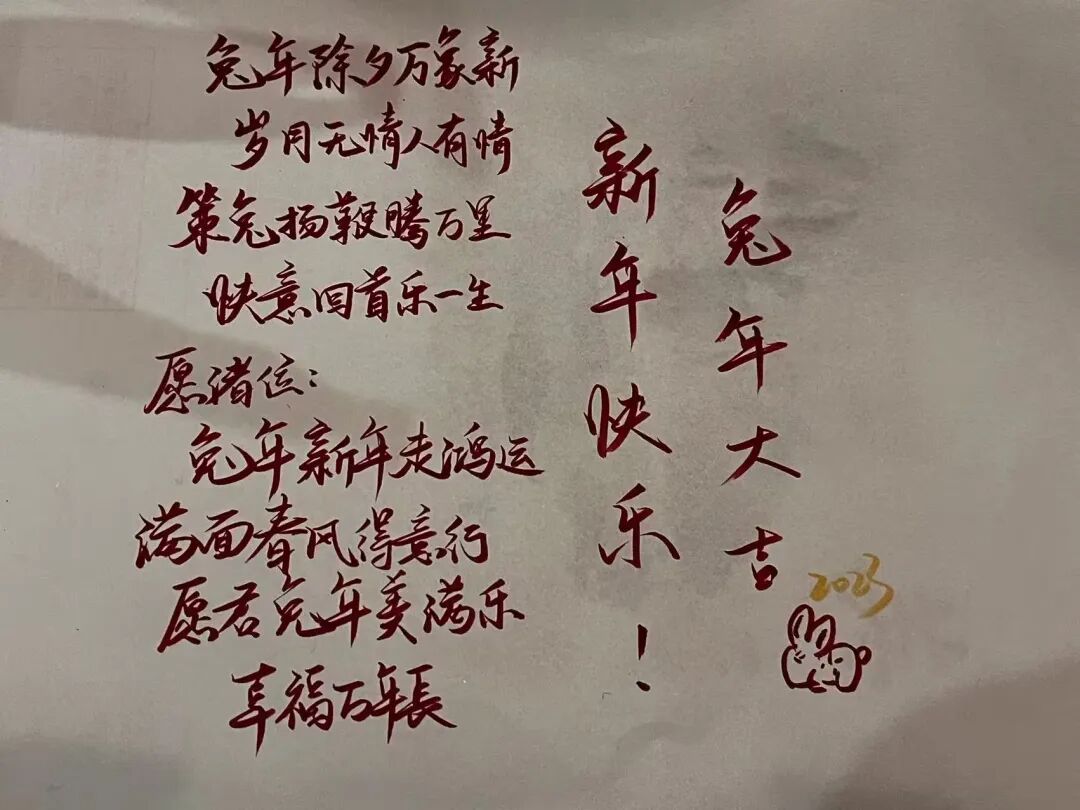 兔年除夕万象新
岁月无情人有情
策兔扬鞭腾万里
快意回首乐一生
愿诸位:
兔年新年走鸿运
满面春风得意行
愿君兔年美满乐
幸福万年長
新年快乐!
兔年大吉
2023